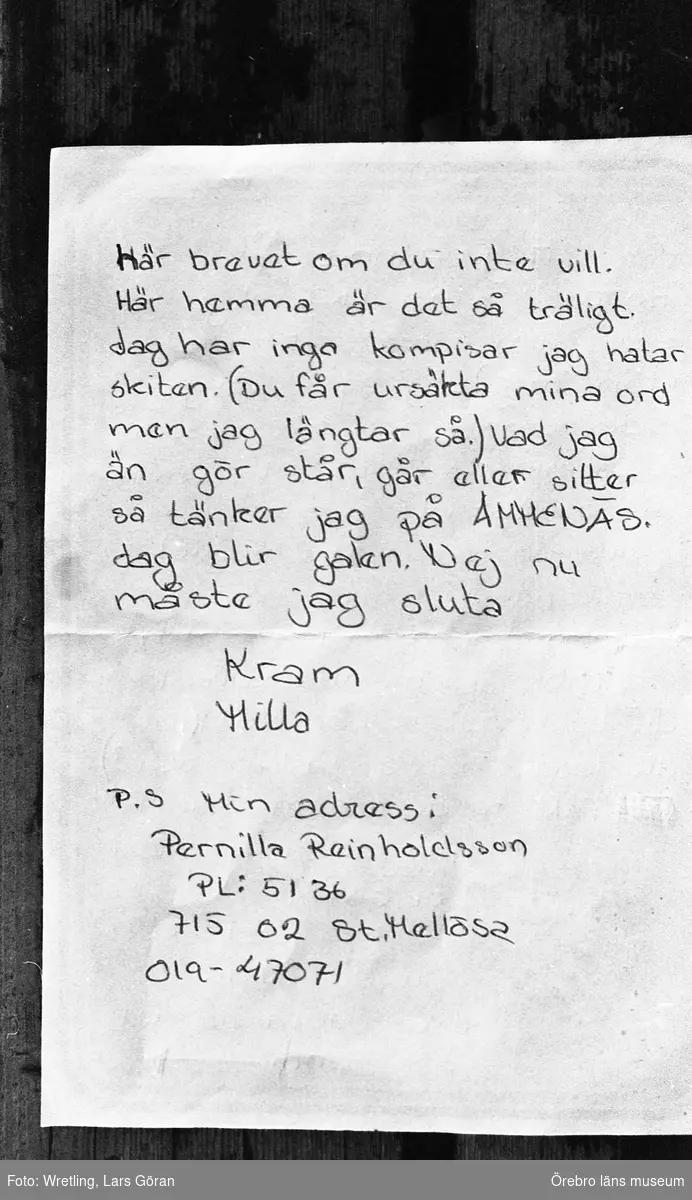 här brevet om du inte vill.
Här hemma är det så tråligt.
Jag har inga kompisar jag hatar
skiten. (Du får ursäkta mina ord
men jag längtar så.) Vad jag
än gör står, går eller sitter
så tänker jag på ÅMMENÄS.
Jag blir galen. Nej nu
måste jag sluta
Kram
Milla
P.S Min adress:
Pernilla Reinholdsson
PL: 5136
715 02 St. Mellösa
019-47071
Foto: Wretling, Lars Göran
Örebro läns museum